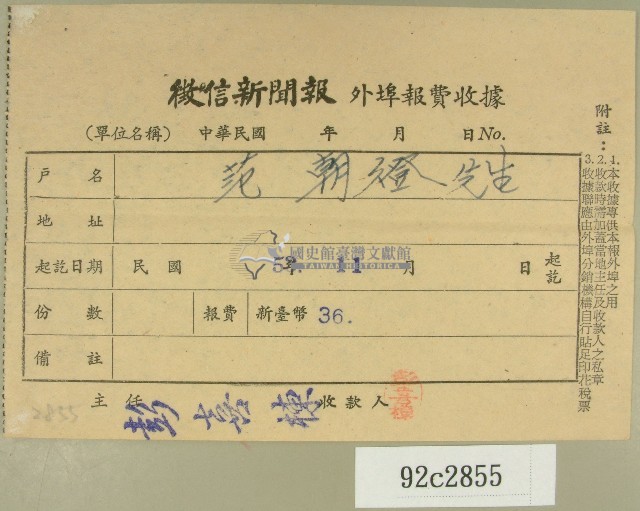 徵信新聞報 外埠報費收據
(單位名稱) 中華民國 年 月 日 No.
戶名 范朝燈 先生
地址
起訖日期 民國 年 11 月 日 起訖
國史館臺灣文獻館
TAIWAN HISTORICA
份數 報費 新臺幣 36.
備註
主任 彭嘉棟 收款人
附註：
1. 本收據專供本報外埠之用
2. 收款時需加蓋當地主任及收款人之私章
3. 收據聯應由外埠分銷機構自行貼足印花稅票
2855
92c2855